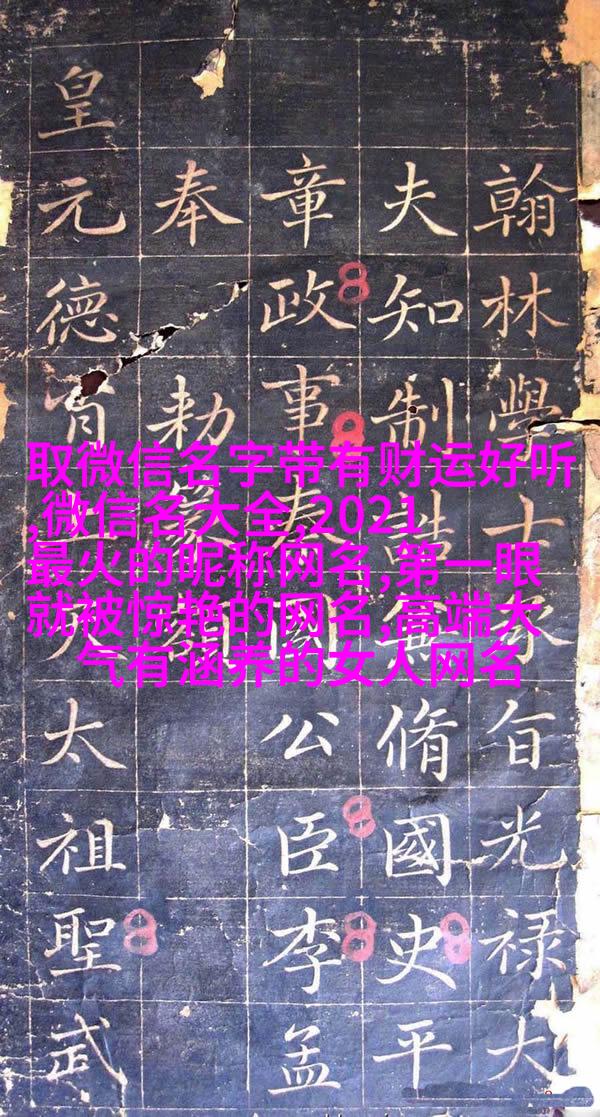 取微信名字带有财运好听
,微信名大全,2021
最火的昵称网名,第一眼
就被惊艳的网名,高端大
气有涵养的女人网名
翰林學士承旨光禄大
夫知制誥兼脩國史平
章政事秦國公臣李孟
奉勑篆額
皇元德太祖聖武